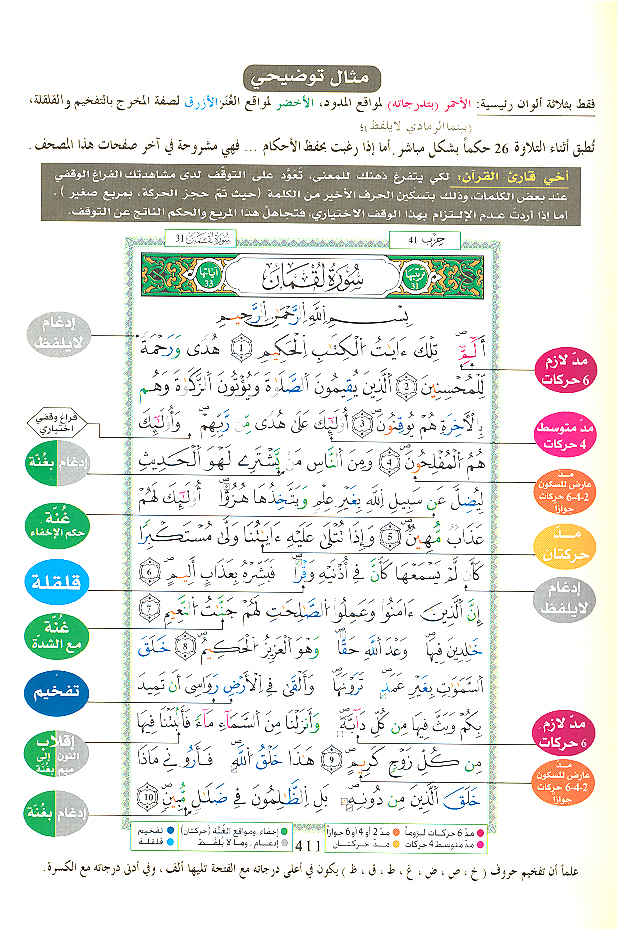 مثال توضيحي
فقط بثلاثة ألوان رئيسية: الأحمر (بتدرجاته) لمواقع المدود، الأخضر لمواقع الغُنَن، الأزرق لصفة المخرج بالتفخيم والقلقلة،
(بينما الرمادي لا يلفظ)؛
تُطبق أثناء التلاوة 26 حكماً بشكل مباشر. أما إذا رغبت بحفظ الأحكام ... فهي مشروحة في آخر صفحات هذا المصحف.
أخي قارئ القرآن: لكي يتفرغ ذهنك للمعنى، تَعَوَّد على التوقف لدى مشاهدتك الفراغ الوقفي
عند بعض الكلمات، وذلك بتسكين الحرف الأخير من الكلمة (حيث تمّ حجز الحركة، بمربع صغير).
أما إذا أردت عدم الإلتزام بهذا الوقف الاختياري، فتجاهل هذا المربع والحكم الناتج عن التوقف.
حزب 41
سورة لقمان 31
ترتيبها 31
سُورَةُ لُقْمَان
بِسْمِ اللَّهِ الرَّحْمَنِ الرَّحِيمِ
الٓمٓ ١ تِلْكَ ءَايَتُ الْكِتَبِ الْحَكِيمِ هُدًى وَرَحْمَةً
لِّلْمُحْسِنِينَ الَّذِينَ يُقِيمُونَ الصَّلَوةَ وَيُؤْتُونَ الزَّكَوةَ وَهُم
بِالْأَخِرَةِ هُمْ يُوقِنُونَ أُوْلَئِكَ عَلَى هُدًى مِّن رَّبِّهِمْ وَأُوْلَئِكَ
هُمُ الْمُفْلِحُونَ وَمِنَ النَّاسِ مَن يَشْتَرِى لَهْوَ الْحَدِيثِ
لِيُضِلَّ عَن سَبِيلِ اللَّهِ بِغَيْرِ عِلْمٍ وَيَتَّخِذَهَا هُزُوًا أُوْلَئِكَ لَهُمْ
عَذَابٌ مُّهِينٌ وَإِذَا تُتْلَى عَلَيْهِ ءَايَتُنَا وَلَّى مُسْتَكْبِرًا
كَأَن لَّمْ يَسْمَعْهَا كَأَنَّ فِى أُذُنَيْهِ وَقْرًا فَبَشِّرْهُ بِعَذَابٍ أَلِيمٍ
إِنَّ الَّذِينَ ءَامَنُوا وَعَمِلُوا الصَّلِحَتِ لَهُمْ جَنَّتُ النَّعِيمِ
خَلِدِينَ فِيهَا وَعْدَ اللَّهِ حَقًّا وَهُوَ الْعَزِيزُ الْحَكِيمُ خَلَقَ
السَّمَوَتِ بِغَيْرِ عَمَدٍ تَرَوْنَهَا وَأَلْقَى فِى الْأَرْضِ رَوَسِىَ أَن تَمِيدَ
بِكُمْ وَبَثَّ فِيهَا مِن كُلِّ دَابَّةٍ وَأَنزَلْنَا مِنَ السَّمَاءِ مَاءً فَأَنبَتْنَا فِيهَا
مِن كُلِّ زَوْجٍ كَرِيمٍ هَذَا خَلْقُ اللَّهِ فَأَرُونِى مَاذَا
خَلَقَ الَّذِينَ مِن دُونِهِ بَلِ الظَّلِمُونَ فِى ضَلَلٍ مُّبِينٍ
إدغام
لا يلفظ
فراغ وقفي
اختياري
إدغام بغُنّة
غُنّة
حكم الإخفاء
قلقلة
غُنّة
مع الشدّة
تفخيم
إقلاب
النون إلى
ميم بغنّة
إدغام بغُنّة
مدّ لازم
6 حركات
مدّ متوسط
4 حركات
مدّ
عارض للسكون
2-4-6 حركات
جوازاً
مدّ
حركتان
إدغام
لا يلفظ
مدّ لازم
6 حركات
مدّ
عارض للسكون
2-4-6 حركات
جوازاً
مدّ 6 حركات لزوماً مدّ 2 أو 4 أو 6 جوازاً
مدّ متوسط 4 حركات مدّ حركتان
411
إخفاء ومواقع الغُنَّة (حركتان) تفخيم
إدغام، وما لا يُلفَظ قلقلة
علماً أن تفخيم حروف (خ ، ص ، ض ، غ ، ط ، ق ، ظ) يكون في أعلى درجاته مع الفتحة تليها ألف، وفي أدنى درجاته مع الكسرة.